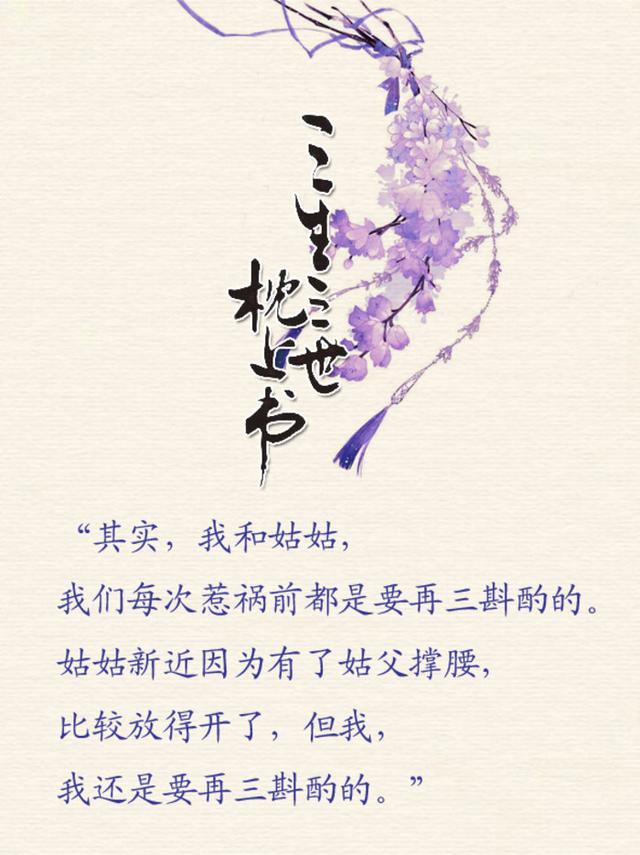 三生三世
枕上书
“其实，我和姑姑，
我们每次惹祸前都是要再三斟酌的。
姑姑新近因为有了姑父撑腰，
比较放得开了，但我，
我还是要再三斟酌的。”